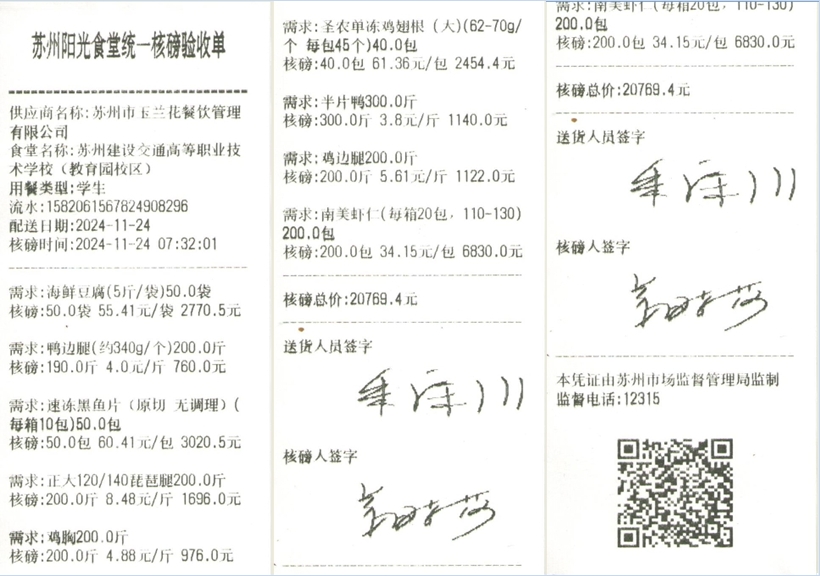 苏州阳光食堂统一核磅验收单
供应商名称:苏州市玉兰花餐饮管理
有限公司
食堂名称:苏州建设交通高等职业技
术学校（教育园校区）
用餐类型:学生
流水:1582061567824908296
配送日期:2024-11-24
核磅时间:2024-11-24 07:32:01
需求:海鲜豆腐(5斤/袋)50.0袋
核磅:50.0袋 55.41元/袋 2770.5元
需求:鸭边腿(约340g/个)200.0斤
核磅:190.0斤 4.0元/斤 760.0元
需求:速冻黑鱼片（原切 无调理）(
每箱10包)50.0包
核磅:50.0包 60.41元/包 3020.5元
需求:正大120/140琵琶腿200.0斤
核磅:200.0斤 8.48元/斤 1696.0元
需求:鸡胸200.0斤
核磅:200.0斤 4.88元/斤 976.0元
需求:圣农单冻鸡翅根（大)(62-70g/
个 每包45个)40.0包
核磅:40.0包 61.36元/包 2454.4元
需求:半片鸭300.0斤
核磅:300.0斤 3.8元/斤 1140.0元
需求:鸡边腿200.0斤
核磅:200.0斤 5.61元/斤 1122.0元
需求:南美虾仁(每箱20包，110-130)
200.0包
核磅:200.0包 34.15元/包 6830.0元
核磅总价:20769.4元
送货人员签字
核磅人签字
需求:南美虾仁(每箱20包，110-130)
200.0包
核磅:200.0包 34.15元/包 6830.0元
核磅总价:20769.4元
送货人员签字
核磅人签字
本凭证由苏州市场监督管理局监制
监督电话:12315